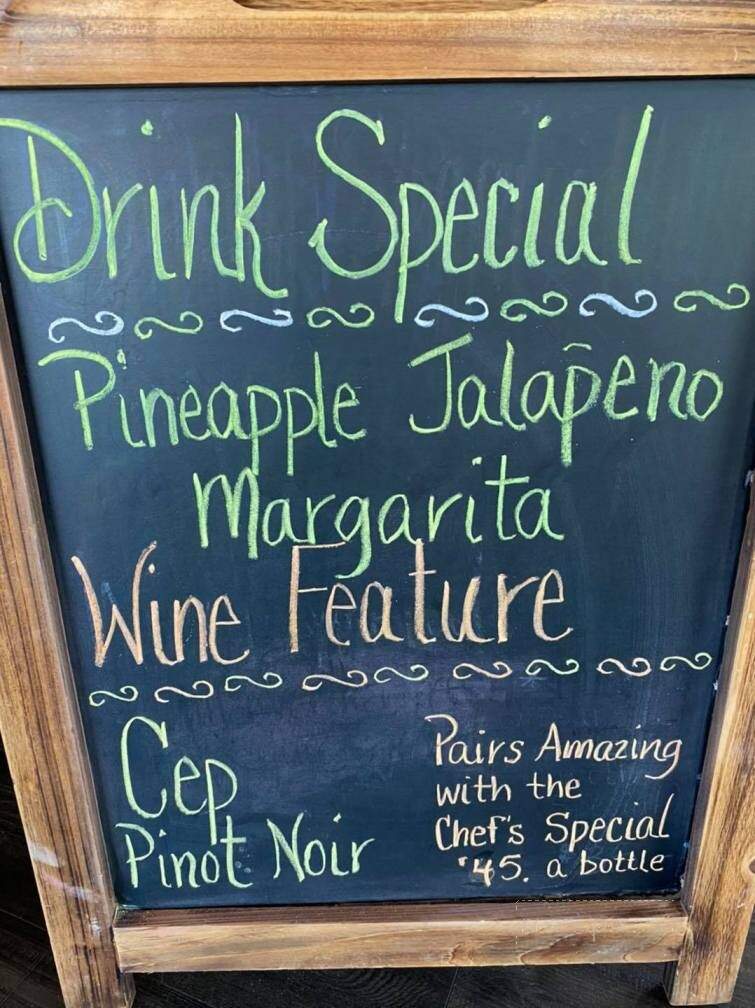 Drink Special
Pineapple Jalapeño
Margarita
Wine Feature
Cep
Pinot Noir
Pairs Amazing
with the
Chef's Special
$45. a bottle